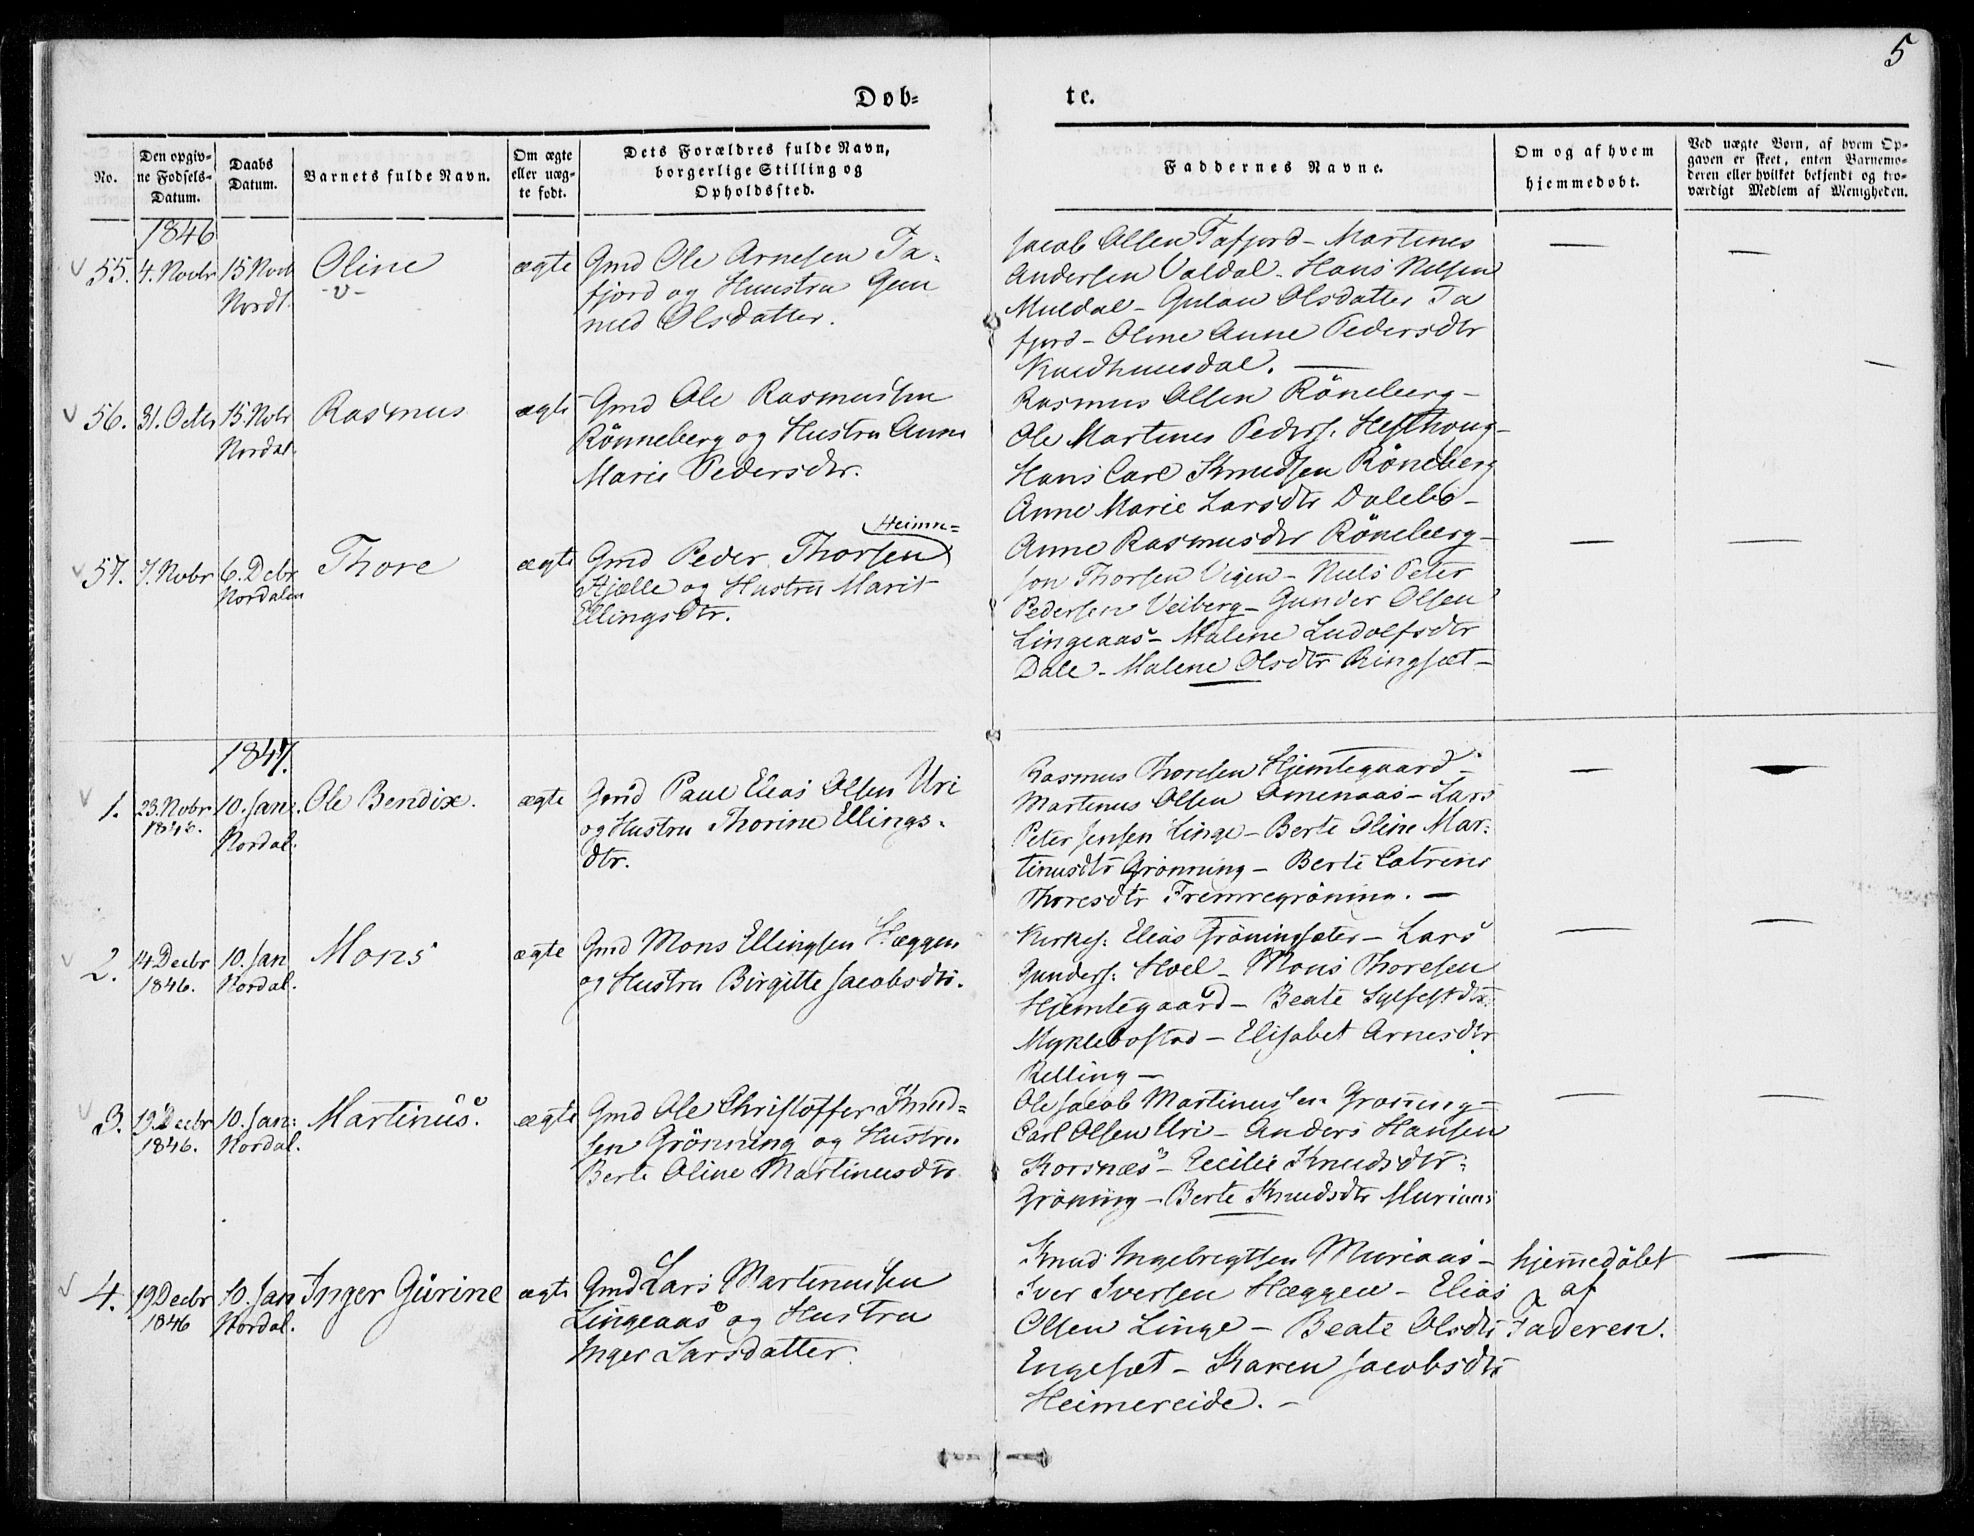 5
Døb-
te.
No.
Den opgiv-
ne Fødsels-
Datum.
Daabs
Datum.
Barnets fulde Navn.
Om ægte
eller uæg-
te født.
Dets Forældres fulde Navn,
borgerlige Stilling og
Opholdssted.
Faddernes Navne.
Om og af hvem
hjemmedøbt.
Ved uægte Børn, af hvem Op-
gaven er skeet, enten Barnemo-
deren eller hvilket bekjendt og tro-
værdigt Medlem af Menigheden.
1846
55. 4. Novbr 15 Novb
Nordl.
Oline
ægte
Gmd Ole Arnesen Ta-
fjord og Huustru Gun
med Olsdatter.
Jacob Olsen Tafjord - Martines
Andersen Valdal - Hans Nilsen
Muldal - Gulau Olsdatter Ta
fjord - Oline Anne Pedersdtr
—
—
56. 31. Octbr 15 Nobr
Nordal.
Rasmus
ægte
Gmd Ole Rasmussen
Rönneberg og Hustru Anne
Marie Pedersdtr.
Rasmus Olsen Röneberg -
Ole Martines Peders. Hesthoug -
Hans Carl Knudsen Röneberg
Anne Marie Larsdtr Dalebø -
Anne Rasmusdtr Röneberg -
57. 7. Nobr 6. Debr
Nordalen
Thore
ægte
Heimre=
Gmd Peder Thorsen
Kjælle og Hustru Marit
Ellingsdtr.
Jon Thorsen Vigen - Niels Peter
Pedersen Veiberg - Gunder Olsen
Lingeaas - Malene Ludolfsdtr
Dale - Malene Olsdtr Ringset -
—
—
1847.
1. 23. Nobr
1846.
10. Jan:
Nordal.
Ole Bendix.
ægte
Gmd Paul Elias Olsen Uri
og Hustru Thorine Ellings-
dtr.
Rasmus Thoresen Hjemtegaard -
Martinus Olsen Omenaas - Lars
Peter Jensen Linge - Berte Oline Mar-
tinusdtr Grönning - Berte Catrine
Thoresdtr Fremregröning. —
—
—
2. 14 Decbr
1846.
10. Jan
Nordal.
Mons
ægte
Gmd Mons Ellingsen Hæggen
og Hustru Birgitte Jacobsdtr.
Kirkes: Elias Gröningsæter - Lars
Gunders: Hoel - Mons Thoresen
Hjemtegaard - Beate Sylfestdtr
Myklebostad - Elisabet Arnesdtr
Relling —
—
—
3. 19 Decbr
1846.
10. Jan:
Nordal.
Martinus.
ægte
Gmd Ole Christoffer Knud=
sen Grönning og Hustru
Berte Oline Martinusdtr
Ole Jacob Martinussen Gröning -
Carl Olsen Uri - Anders Hansen
Korsnæs - Cecilie Knudsdtr
Gröning - Berte Knudsdtr Muriaas
—
—
4. 19 Decbr
1846
10. Jan
Nordal.
Inger Gürine
ægte
Gmd Lars Martinussen
Lingeaas og Hustru
Inger Larsdatter.
Knud Ingebregtsen Muriaas -
Iver Iversen Hæggen - Elias
Olsen Linge - Beate Olsdtr
Engeset - Karen Jacobsdtr
Heimereide. -
hjemmedöbt
af
Faderen.
—